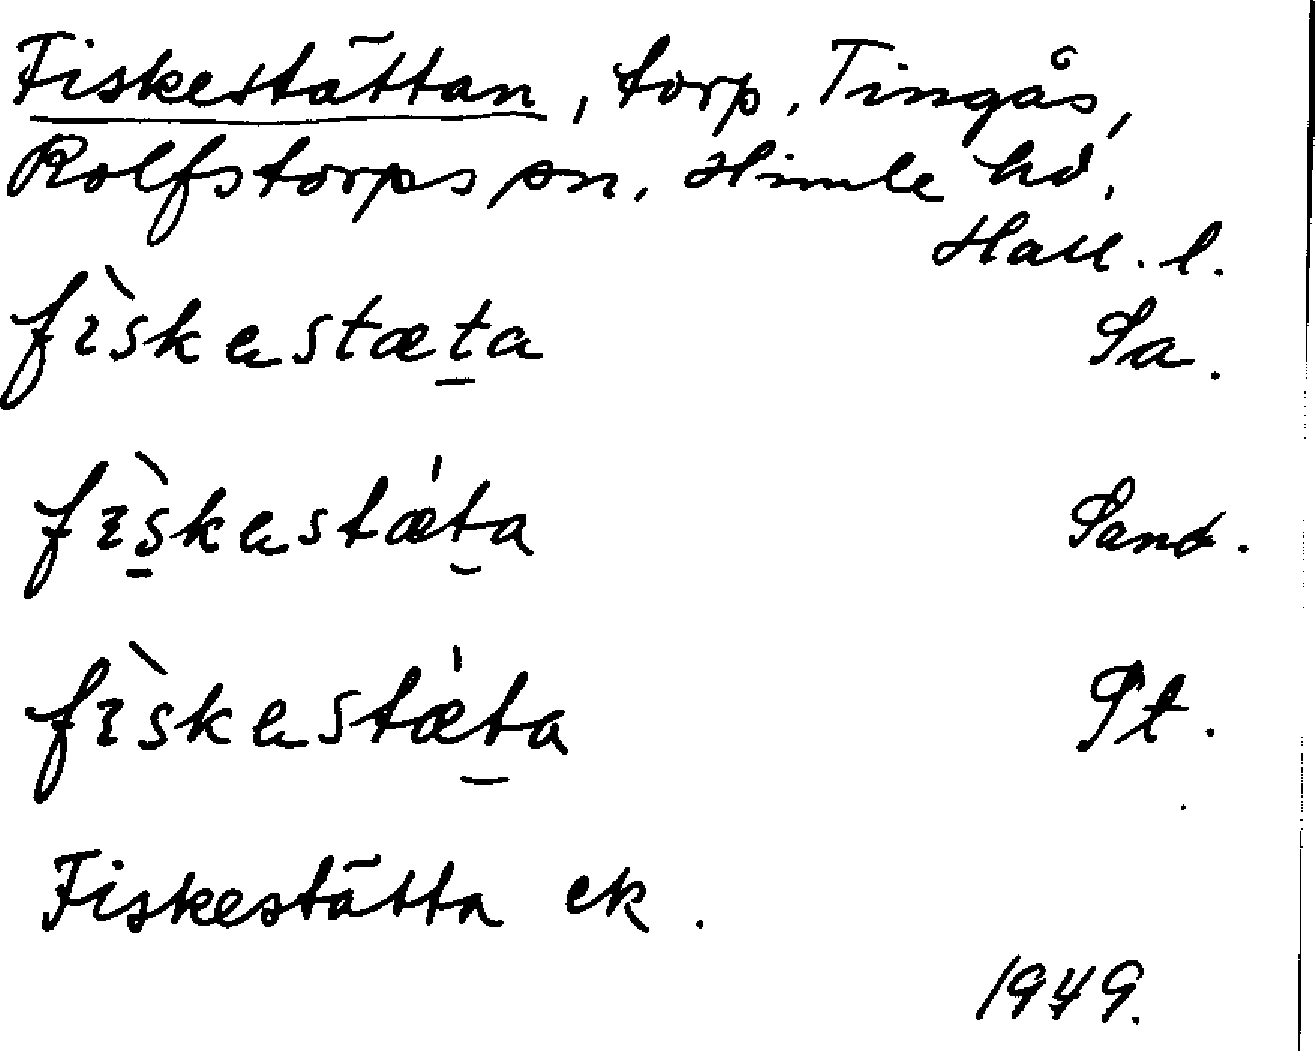 Fiskestättan, torp, Tingås,
Rolfstorps sn, Himle hd,
Hall. l.
fìskestæta Sa.
fìskestæ̍ta Sand.
fìskestæ̍ta Pt.
Fiskestätta ek.
1949.